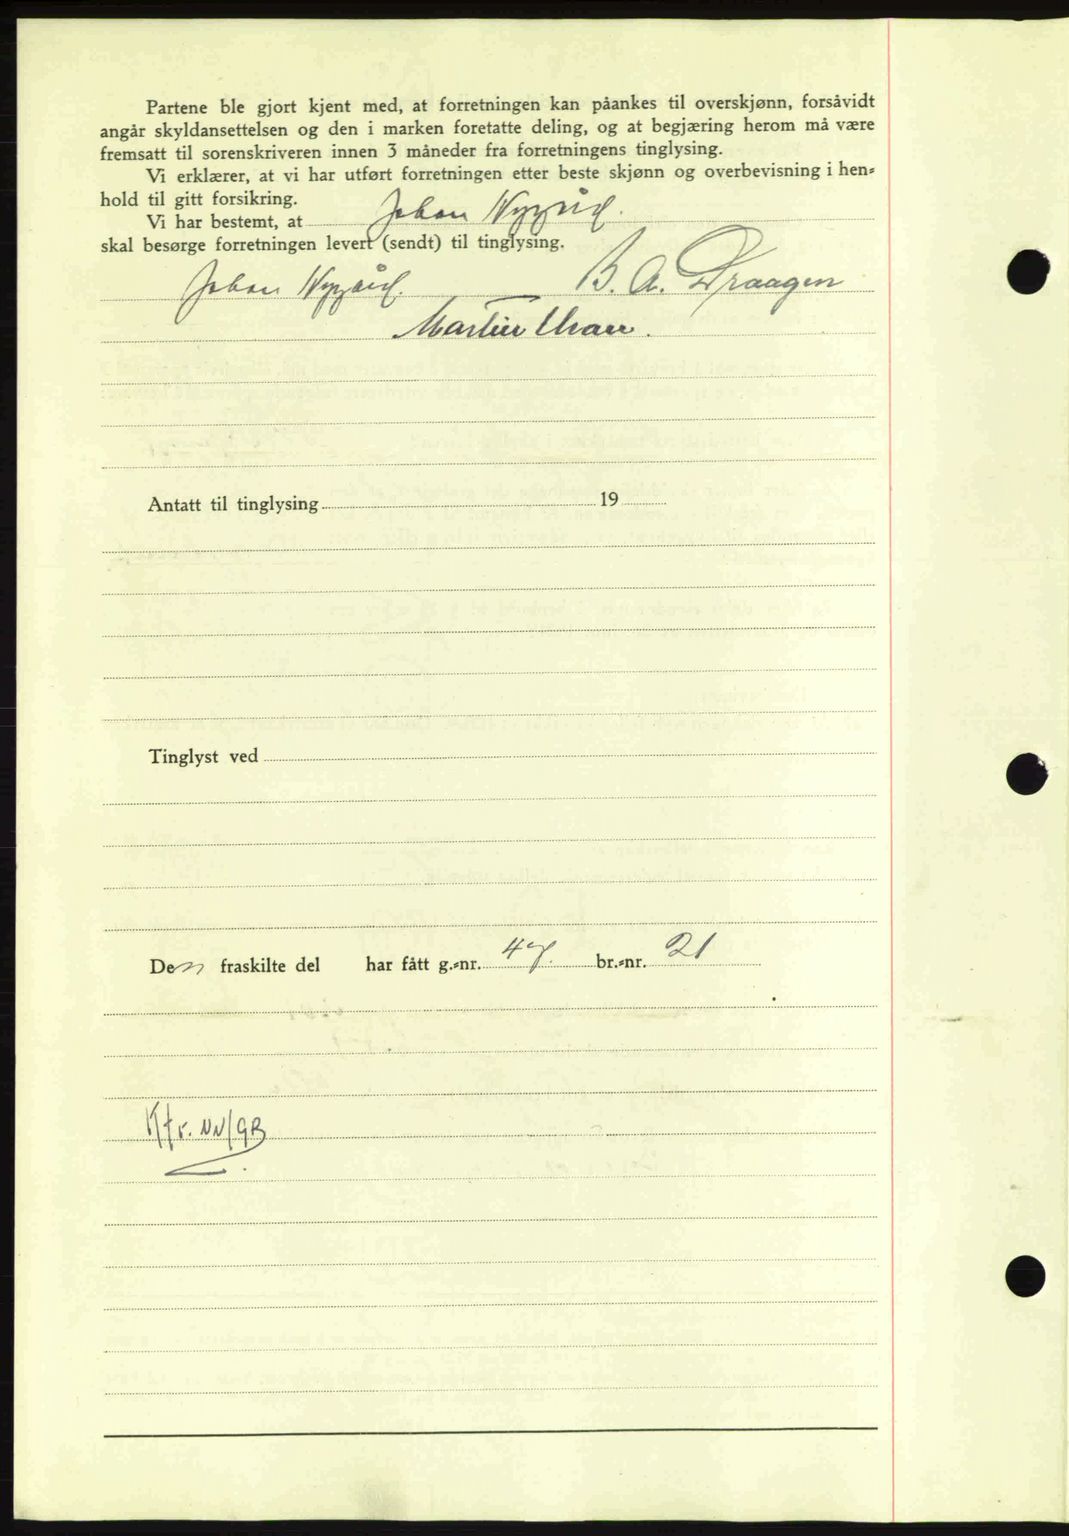 Partene ble gjort kjent med, at forretningen kan påankes til overskjønn, forsåvidt
angår skyldansettelsen og den i marken foretatte deling, og at begjæring herom må være
fremsatt til sorenskriveren innen 3 måneder fra forretningens tinglysing.
Vi erklærer, at vi har utført forretningen etter beste skjønn og overbevisning i hen-
hold til gitt forsikring.
Vi har bestemt, at Johan Nygård.
skal besørge forretningen levert (sendt) til tinglysing.
Johan Nygård. B. A. Draagen
Martin
Antatt til tinglysing 19
Tinglyst ved
Den fraskilte del har fått g.-nr. br.-nr. 21
Kfr. NN/GB